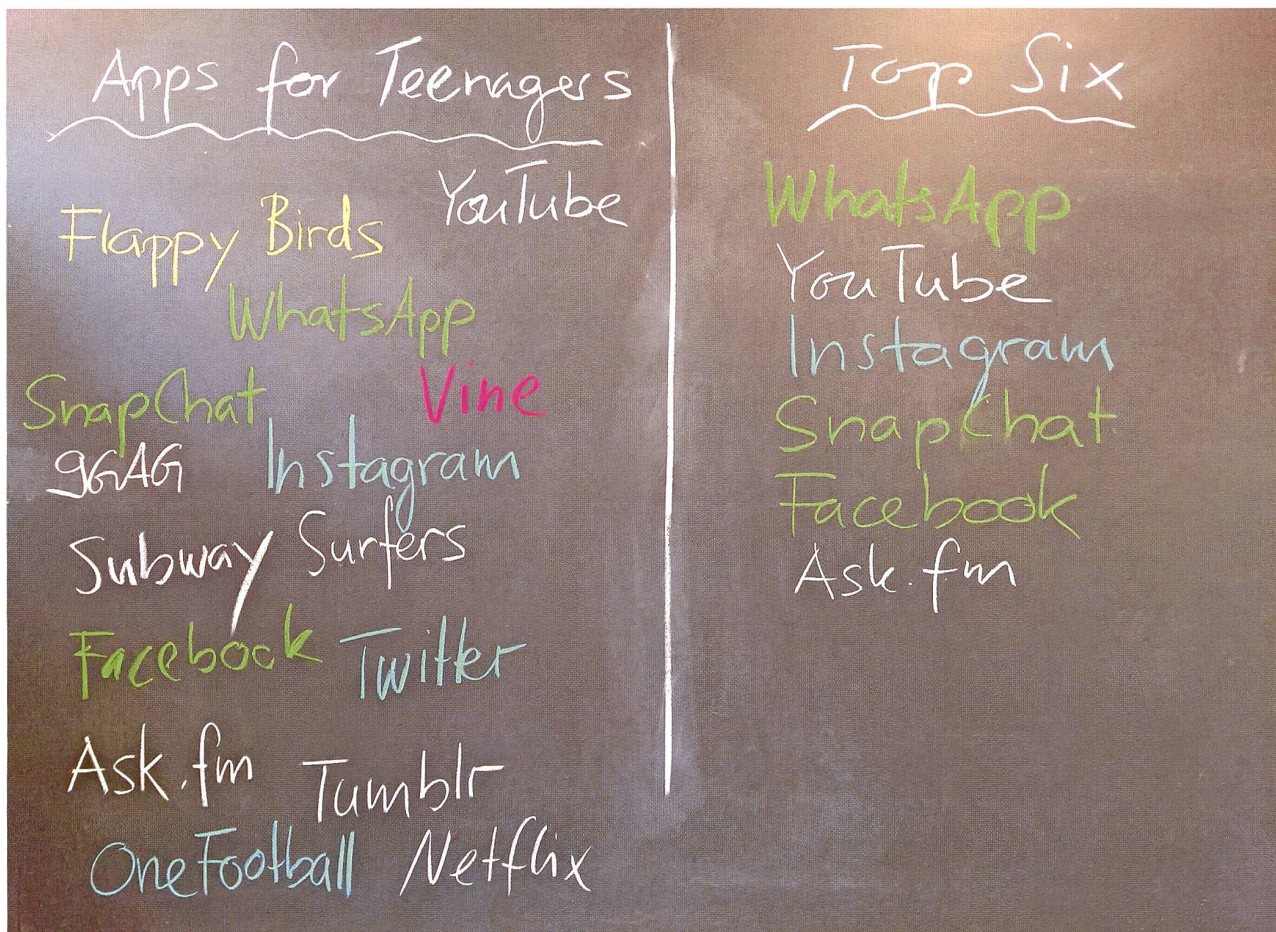 Apps for Teenagers
YouTube
Flappy Birds
WhatsApp
SnapChat
Vine
9GAG
Instagram
Subway Surfers
Facebook
Twitter
Ask.fm
Tumblr
OneFootball
Netflix
Top Six
WhatsApp
YouTube
Instagram
SnapChat
Facebook
Ask.fm